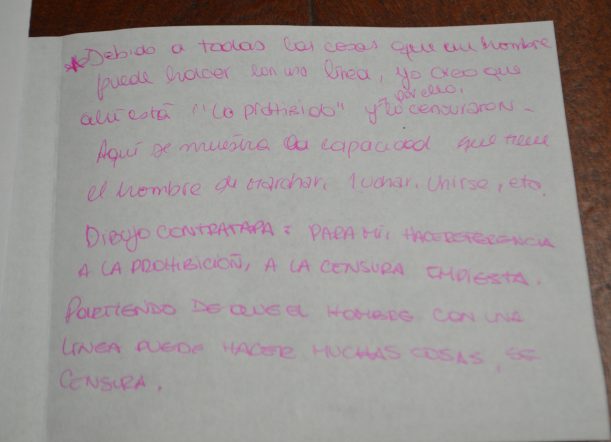 *Debido a todas las cosas que un hombre
puede hacer con una línea, yo creo que
por ello,
ahí está "lo prohibido" y lo censuraron.
Aquí se muestra la capacidad que tiene
el hombre de marchar, luchar, unirse, etc.
Dibujo CONTRATAPA: PARA MÍ, HACE REFERENCIA
A LA PROHIBICIÓN, A LA CENSURA IMPUESTA.
PARTIENDO DE QUE EL HOMBRE CON UNA
LÍNEA PUEDE HACER MUCHAS COSAS, SE
CENSURA.